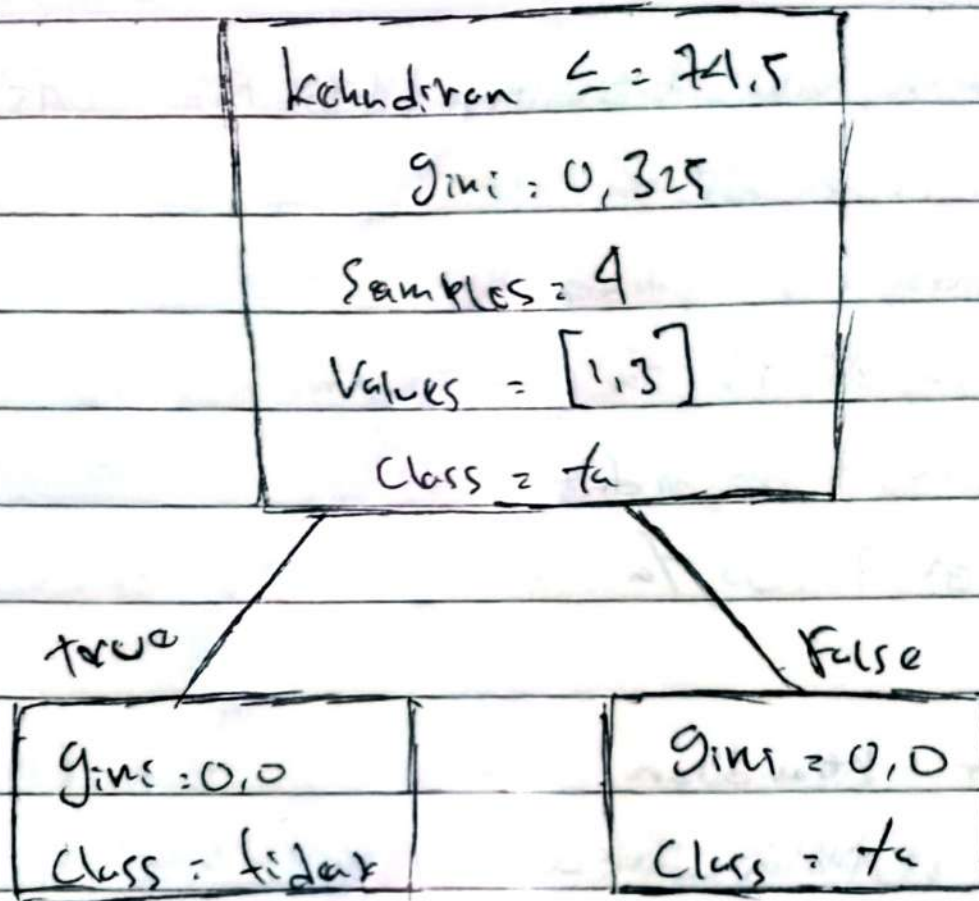 Kehadiran <= 74,5
gini : 0,325
Samples = 4
Values = [1,3]
Class = ta
true
False
gini : 0,0
Class = tidak
gini = 0,0
Class = ta